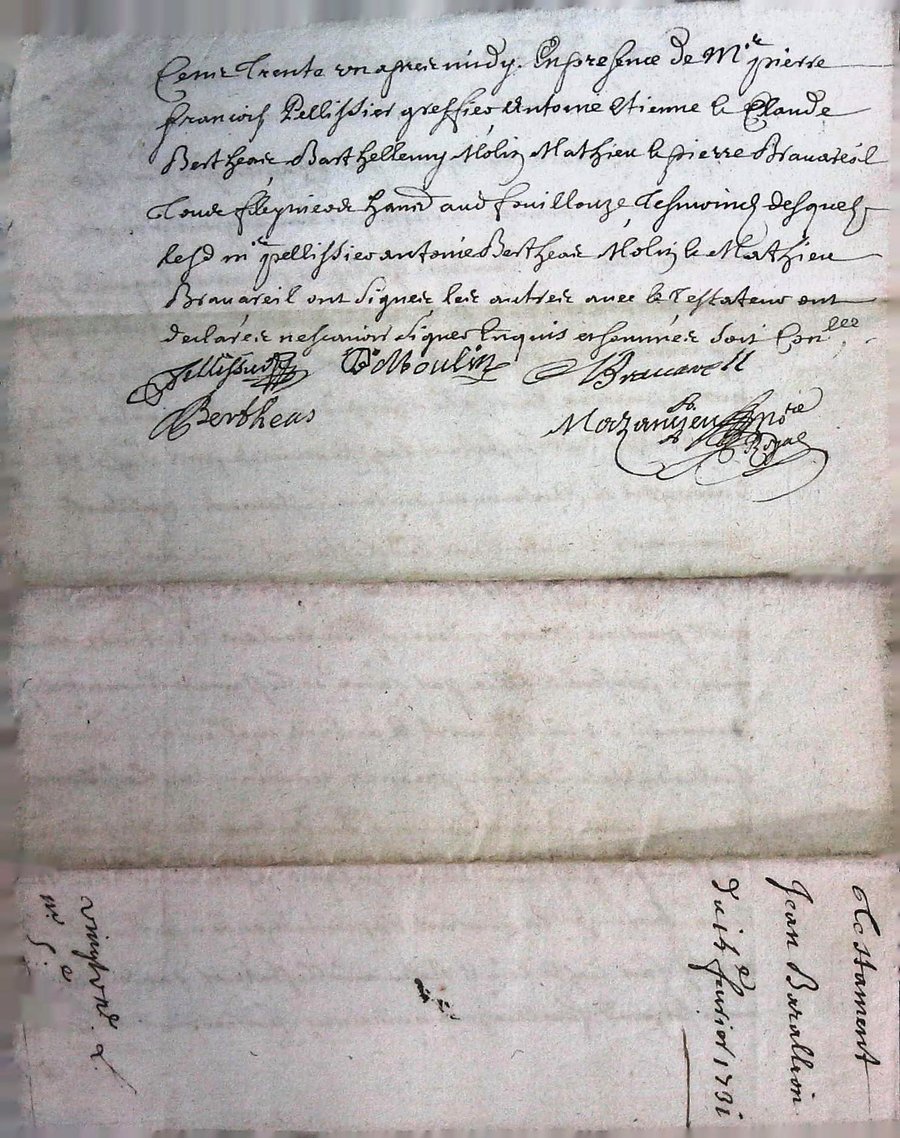 Cens trente un apres midy. En presence de M.re pierre
francois Pellissier greffier antoine Etienne & Claude
Bertheas Barthellemy Molin Mathieu & pierre Brauareil
Tous habd aud fouillouze Tesmoings desquels
lesd m.re pellissier antoine Bertheas Molin & Mathieu
Brauareil ont signes les autres auec le Testateur ont
declares ne scauoir signer Enquis et sommes soit Con.llee
Pellissier Molin Brauareil
Bertheas Mazanieu no.re
Royal
Testament
Jean Barallion
Du feurier 1731